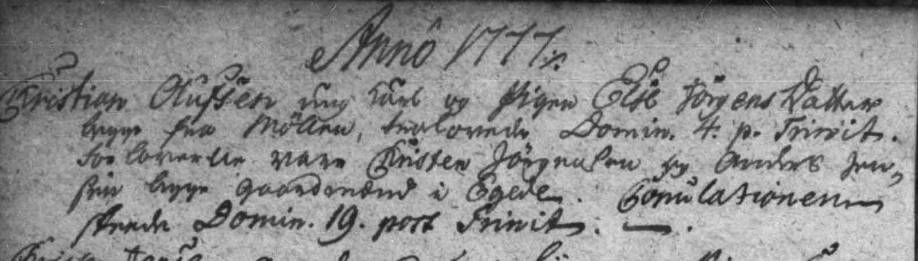 Anno 1777.
Christian Olufsen ung karl og Pigen Else Jörgens Datter
begge fra Möllen, trolovede Domin. 4. p. Trinit.
Forloverne vare Christen Jörgensen og Anders Jen-
sen begge gaardmænd i Egede. Copulationen
skeede Domin. 19. post Trinit.